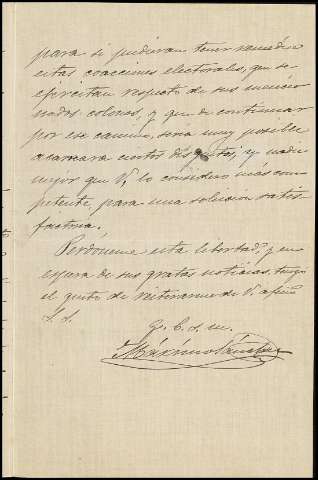 para si pudieran tener remedio
estas coacciones electorales, que se
ejercitan respecto de sus mencio
nados colonos, y que de continuar
por ese camino, seria muy posible
acarreara ciertos disgustos, y nadie
mejor que V. lo considero más com
petente para una solucion satis
factoria.
Perdoneme esta libertad, y en
espera de sus gratas noticias, tengo
el gusto de reiterarme de V. afmo
S. S.
Q. B. s. m.
Máximo Sánchez